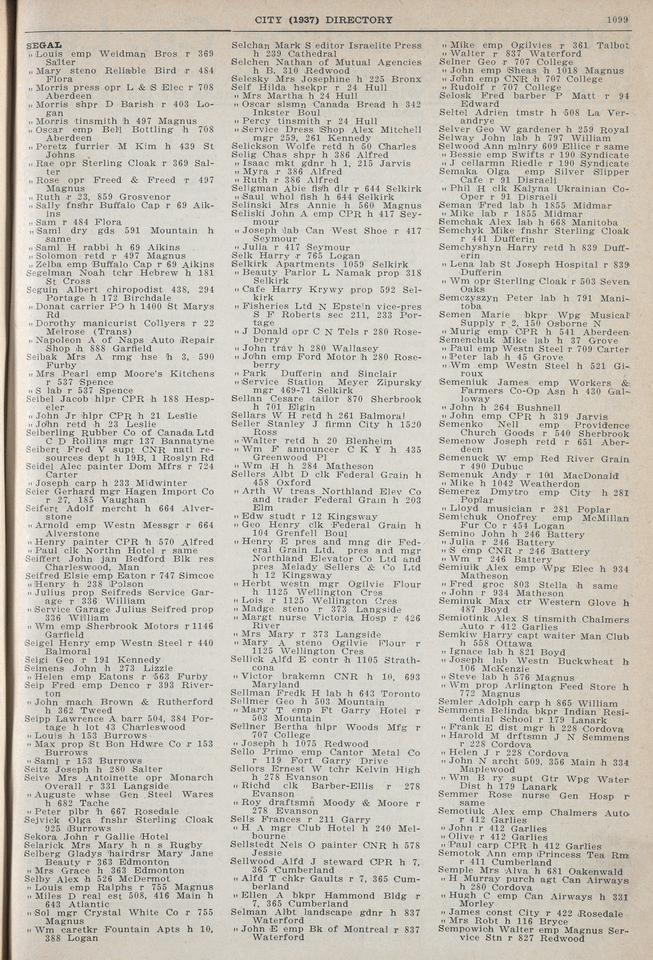 CITY (1937) DIRECTORY 1099
SEGAL
" Louis emp Weidman Bros r 369
Salter
" Mary steno Reliable Bird r 484
Flora
" Morris press opr L & S Elec r 708
Aberdeen
" Morris shpr D Barish r 403 Lo-
gan
" Morris tinsmith h 497 Magnus
" Oscar emp Bell Bottling h 708
Aberdeen
" Peretz furrier M Kim h 439 St
Johns
" Rae opr Sterling Cloak r 369 Sal-
ter
" Rose opr Freed & Freed r 497
Magnus
" Ruth r 23, 859 Grosvenor
" Sally fnshr Buffalo Cap r 69 Aik-
ins
" Sam r 484 Flora
" Saml dry gds 591 Mountain h
same
" Saml H rabbi h 69 Aikins
" Solomon retd r 497 Magnus
" Zelba emp Buffalo Cap r 69 Aikins
Segelman Noah tchr Hebrew h 181
St Cross
Seguin Albert chiropodist 438, 294
Portage h 172 Birchdale
" Donat carrier PO h 1400 St Marys
Rd
" Dorothy manicurist Collyers r 22
Melrose (Trans)
" Napoleon A of Naps Auto Repair
Shop h 888 Garfield
Seibak Mrs A rmg hse h 3, 590
Furby
" Mrs Pearl emp Moore's Kitchens
r 537 Spence
" S lab r 537 Spence
Seibel Jacob hlpr CPR h 188 Hesp-
eler
" John Jr hlpr CPR h 21 Leslie
" John retd h 23 Leslie
Seiberling Rubber Co of Canada Ltd
C D Rollins mgr 137 Bannatyne
Seibert Fred V supt CNR natl re-
sources dept h 19B, 1 Roslyn Rd
Seidel Alec painter Dom Mfrs r 724
Carter
" Joseph carp h 233 Midwinter
Seier Gerhard mgr Hagen Import Co
r 27, 185 Vaughan
Seifert Adolf mercht h 664 Alver-
stone
" Arnold emp Westn Messgr r 664
Alverstone
" Henry painter CPR h 570 Alfred
" Paul clk Northn Hotel r same
Seiffert John jan Bedford Blk res
Charleswood, Man
Seifred Elsie emp Eaton r 747 Simcoe
" Henry h 238 Polson
" Julius prop Seifreds Service Gar-
age r 336 William
" Service Garage Julius Seifred prop
336 William
" Wm emp Sherbrook Motors r 1146
Garfield
Seigel Henry emp Westn Steel r 440
Balmoral
Seigi Geo r 191 Kennedy
Seimens John h 273 Lizzie
" Helen emp Eatons r 563 Furby
Seip Fred emp Denco r 393 River-
ton
" John mach Brown & Rutherford
h 362 Tweed
Seipp Lawrence A barr 504, 384 Por-
tage h lot 43 Charleswood
" Louis h 153 Burrows
" Max prop St Bon Hdwre Co r 153
Burrows
" Saml r 153 Burrows
Seitz Joseph h 280 Salter
Seive Mrs Antoinette opr Monarch
Overall r 331 Langside
" Auguste whse Gen Steel Wares
h 682 Tache
" Peter plbr h 667 Rosedale
Sejvick Olga fnshr Sterling Cloak
925 Burrows
Sekora John r Gallie Hotel
Selarick Mrs Mary h n s Rugby
Selberg Gladys hairdrsr Mary Jane
Beauty r 363 Edmonton
" Mrs Grace h 363 Edmonton
Selby Alex h 526 McDermot
" Louis emp Ralphs r 755 Magnus
" Miles D real est 508, 416 Main h
643 Atlantic
" Sol mgr Crystal White Co r 755
Magnus
" Wm caretkr Fountain Apts h 10,
388 Logan
Selchan Mark S editor Israelite Press
h 239 Cathedral
Selchen Nathan of Mutual Agencies
h B, 310 Redwood
Selesky Mrs Josephine h 225 Bronx
Self Hilda hsekpr r 24 Hull
" Mrs Martha h 24 Hull
" Oscar slsmn Canada Bread h 342
Inkster Boul
" Percy tinsmith r 24 Hull
" Service Dress Shop Alex Mitchell
mgr 259, 261 Kennedy
Selickson Wolfe retd h 50 Charles
Selig Chas shpr h 386 Alfred
" Isaac mkt gdnr h 1, 215 Jarvis
" Myra r 386 Alfred
" Ruth r 386 Alfred
Seligman Abie fish dlr r 644 Selkirk
" Saul whol fish h 644 Selkirk
Selinski Mrs Annie h 560 Magnus
Seliski John A emp CPR h 417 Sey-
mour
" Joseph lab Can West Shoe r 417
Seymour
" Julia r 417 Seymour
Selk Harry r 765 Logan
Selkirk Apartments 1059 Selkirk
" Beauty Parlor L Namak prop 318
Selkirk
" Cafe Harry Krywy prop 592 Sel-
kirk
" Fisheries Ltd N Epstein vice-pres
S F Roberts sec 211, 233 Por-
tage
" J Donald opr C N Tels r 280 Rose-
berry
" John trav h 280 Wallasey
" John emp Ford Motor h 280 Rose-
berry
" Park Dufferin and Sinclair
" Service Station Meyer Zipursky
mgr 469-71 Selkirk
Sellan Cesare tailor 870 Sherbrook
h 701 Elgin
Sellars W H retd h 261 Balmoral
Seller Stanley J firmn City h 1520
Ross
" Walter retd h 20 Blenheim
" Wm F announcer C K Y h 435
Greenwood Pl
" Wm H h 284 Matheson
Sellers Albt D clk Federal Grain h
458 Oxford
" Arth W treas Northland Elev Co
and trader Federal Grain h 203
Elm
" Edw studt r 12 Kingsway
" Geo Henry clk Federal Grain h
104 Grenfell Boul
" Henry E pres and mng dir Fed-
eral Grain Ltd, pres and mgr
Northland Elevator Co Ltd and
pres Melady Sellers & Co Ltd
h 12 Kingsway
" Herbt westn mgr Ogilvie Flour
h 1125 Wellington Cres
" Lois r 1125 Wellington Cres
" Madge steno r 373 Langside
" Margt nurse Victoria Hosp r 426
River
" Mrs Mary r 373 Langside
" Mary A steno Ogilvie Flour r
1125 Wellington Cres
Sellick Alfd E contr h 1105 Strath-
cona
" Victor brakemn CNR h 10, 693
Maryland
Sellman Fredk H lab h 643 Toronto
Sellmer Geo h 503 Mountain
" Mary T emp Ft Garry Hotel r
503 Mountain
Sellner Bertha hlpr Woods Mfg r
707 College
" Joseph h 1075 Redwood
Sello Primo emp Cantor Metal Co
r 119 Fort Garry Drive
Sellors Ernest W tchr Kelvin High
h 278 Evanson
" Richd clk Barber-Ellis r 278
Evanson
" Roy draftsmn Moody & Moore r
278 Evanson
Sells Frances r 211 Garry
" H A mgr Club Hotel h 240 Mel-
bourne
Sellstedt Nels O painter CNR h 578
Jessie
Sellwood Alfd J steward CPR h 7,
365 Cumberland
" Alfd T chkr Gaults r 7, 365 Cum-
berland
" Ellen A bkpr Hammond Bldg r
7, 365 Cumberland
Selman Albt landscape gdnr h 837
Waterford
" John E emp Bk of Montreal r 837
Waterford
" Mike emp Ogilvies r 361 Talbot
" Walter r 837 Waterford
Selner Geo r 707 College
" John emp Sheas h 1018 Magnus
" John emp CNR h 707 College
" Rudolf r 707 College
Selosk Fred barber P Matt r 94
Edward
Seltel Adrien tmstr h 508 La Ver-
andrye
Selver Geo W gardener h 259 Royal
Selway John lab h 797 William
Selwood Ann mlnry 609 Ellice r same
" Bessie emp Swifts r 190 Syndicate
" J cellarmn Riedle r 190 Syndicate
Semaka Olga emp Silver Slipper
Cafe r 91 Disraeli
" Phil H clk Kalyna Ukrainian Co-
Oper r 91 Disraeli
Seman Fred lab h 1855 Midmar
" Mike lab r 1855 Midmar
Semchak Alex lab h 668 Manitoba
Semchyk Mike fnshr Sterling Cloak
r 441 Dufferin
Semchyshyn Harry retd h 839 Duff-
erin
" Lena lab St Joseph Hospital r 839
Dufferin
" Wm opr Sterling Cloak r 503 Seven
Oaks
Semczyszyn Peter lab h 791 Mani-
toba
Semen Marie bkpr Wpg Musical
Supply r 2, 159 Osborne N
" Murig emp CPR h 541 Aberdeen
Semenchuk Mike lab h 37 Grove
" Paul emp Westn Steel r 709 Carter
" Peter lab h 45 Grove
" Wm emp Westn Steel h 521 Gi-
roux
Semeniuk James emp Workers &
Farmers Co-Op Asn h 430 Gal-
loway
" John h 264 Bushnell
" John emp CPR h 319 Jarvis
Semenko Nell emp Providence
Church Goods r 540 Sherbrook
Semenow Joseph retd r 651 Aber-
deen
Semenuck W emp Red River Grain
r 490 Dubuc
Semenuk Andy r 101 MacDonald
" Mike h 1042 Weatherdon
Semerez Dmytro emp City h 281
Poplar
" Lloyd musician r 281 Poplar
Semichuk Onofrey emp McMillan
Fur Co r 454 Logan
Semino John h 246 Battery
" Julia r 246 Battery
" S emp CNR r 246 Battery
" Wm r 246 Battery
Semiuik Alex emp Wpg Elec h 934
Matheson
" Fred groc 803 Stella h same
" John r 934 Matheson
Seminuk Max ctr Western Glove h
487 Boyd
Semiotink Alex S tinsmith Chalmers
Auto r 412 Garlies
Semkiw Harry capt waiter Man Club
h 558 Ottawa
" Ignace lab h 821 Boyd
" Joseph lab Westn Buckwheat h
106 McKenzie
" Steve lab h 576 Magnus
" Wm prop Arlington Feed Store h
772 Magnus
Semler Adolph carp h 865 William
Semmens Belinda bkpr Indian Resi-
dential School r 179 Lanark
" Frank E dist mgr h 228 Cordova
" Harold M drftsmn J N Semmens
r 228 Cordova
" Helen J r 228 Cordova
" John N archt 509, 356 Main h 334
Maplewood
" Wm B ry supt Gtr Wpg Water
Dist h 179 Lanark
Semmer Rose nurse Gen Hosp r
same
Semotiuk Alex emp Chalmers Auto
r 412 Garlies
" John r 412 Garlies
" Olive r 412 Garlies
" Paul carp CPR h 412 Garlies
Semotok Ann emp Princess Tea Rm
r 411 Cumberland
Semple Mrs Alva h 681 Oakenwald
" H Murray purch agt Can Airways
h 280 Cordova
" Hugh C emp Can Airways h 331
Morley
" James const City r 422 Rosedale
" Mrs Robt h 116 Bryce
Sempowich Walter emp Magnus Ser-
vice Stn r 827 Redwood